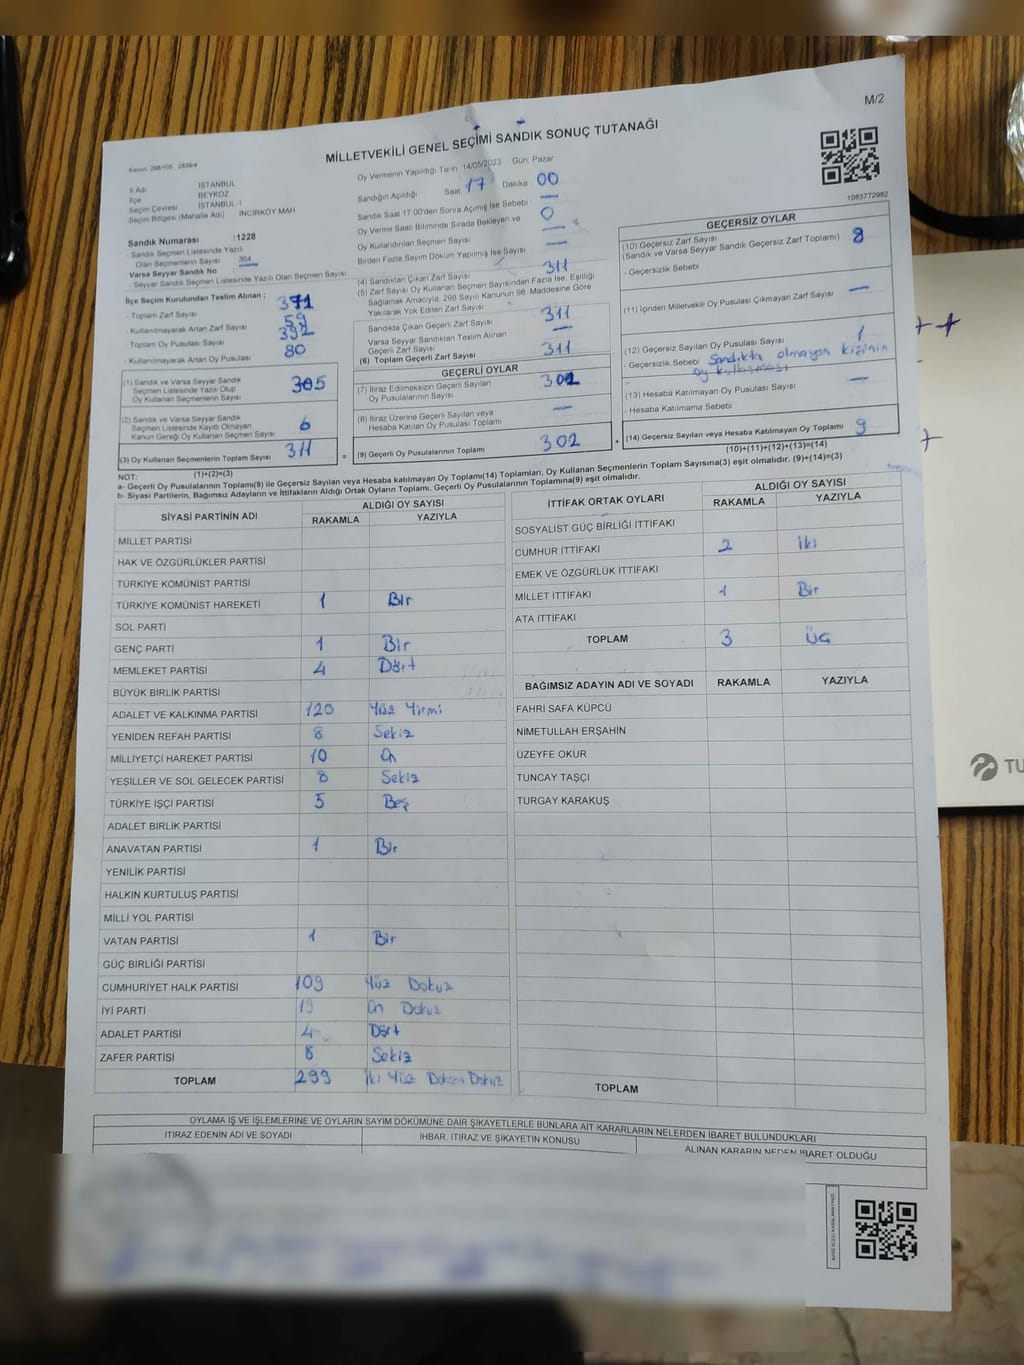 M/2
MİLLETVEKİLİ GENEL SEÇİMİ SANDIK SONUÇ TUTANAĞI
1083772982
İl Adı İSTANBUL
İlçe BEYKOZ
Seçim Çevresi İSTANBUL-1
Seçim Bölgesi (Mahalle Adı) İNCİRKÖY MAH
Sandık Numarası :1228
- Sandık Seçmen Listesinde Yazılı
Olan Seçmenlerin Sayısı 364
Varsa Seyyar Sandık No :
- Seyyar Sandık Seçmen Listesinde Yazılı Olan Seçmen Sayısı
İlçe Seçim Kurulundan Teslim Alınan :
- Toplam Zarf Sayısı 371
- Kullanılmayarak Artan Zarf Sayısı 59
- Toplam Oy Pusulası Sayısı 392
- Kullanılmayarak Artan Oy Pusulası 80
(1) Sandık ve Varsa Seyyar Sandık
Seçmen Listesinde Yazılı Olup
Oy Kullanan Seçmenlerin Sayısı 305
(2) Sandık ve Varsa Seyyar Sandık
Seçmen Listesinde Kayıtlı Olmayan
Kanun Gereği Oy Kullanan Seçmen Sayısı 6
(3) Oy Kullanan Seçmenlerin Toplam Sayısı 311
(1)+(2)=(3)
Oy Vermenin Yapıldığı Tarih 14/05/2023 Gün: Pazar
Sandığın Açıldığı Saat 17 Dakika 00
Sandık Saat 17:00'den Sonra Açılmış İse Sebebi —
Oy Verme Saati Bitiminde Sırada Bekleyen ve 0
Oy Kullandırılan Seçmen Sayısı —
Birden Fazla Sayım Döküm Yapılmış İse Sayısı —
(4) Sandıktan Çıkan Zarf Sayısı 311
(5) Zarf Sayısı Oy Kullanan Seçmen Sayısından Fazla İse, Eşitliği
Sağlamak Amacıyla, 298 Sayılı Kanunun 98. Maddesine Göre
Yakılarak Yok Edilen Zarf Sayısı
Sandıkta Çıkan Geçerli Zarf Sayısı 311
Varsa Seyyar Sandıktan Teslim Alınan
Geçerli Zarf Sayısı —
(6) Toplam Geçerli Zarf Sayısı 311
GEÇERLİ OYLAR
(7) İtiraz Edilmeksizin Geçerli Sayılan
Oy Pusulası Toplamı 302
(8) İtiraz Üzerine Geçerli Sayılan veya
Hesaba Katılan Oy Pusulası Toplamı —
(9) Geçerli Oy Pusulalarının Toplamı 302
GEÇERSİZ OYLAR
(10) Geçersiz Zarf Sayısı
(Sandık ve Varsa Seyyar Sandık Geçersiz Zarf Toplamı) 8
- Geçersizlik Sebebi
(11) İçinden Milletvekili Oy Pusulası Çıkmayan Zarf Sayısı —
(12) Geçersiz Sayılan Oy Pusulası Sayısı 1
- Geçersizlik Sebebi Sandıkta olmayan kişinin
oy kullanması
(13) Hesaba Katılmayan Oy Pusulası Sayısı —
- Hesaba Katılmama Sebebi
(14) Geçersiz Sayılan veya Hesaba Katılmayan Oy Toplamı 9
(10)+(11)+(12)+(13)=(14)
NOT:
a- Geçerli Oy Pusulalarının Toplamı(9) ile Geçersiz Sayılan veya Hesaba katılmayan Oy Toplamı(14) Toplamları, Oy Kullanan Seçmenlerin Toplam Sayısına(3) eşit olmalıdır. (9)+(14)=(3)
b- Siyasi Partilerin, Bağımsız Adayların ve İttifakların Aldığı Ortak Oyların Toplamı, Geçerli Oy Pusulalarının Toplamına(9) eşit olmalıdır.
SİYASİ PARTİNİN ADI ALDIĞI OY SAYISI
RAKAMLA YAZIYLA
MİLLET PARTİSİ
HAK VE ÖZGÜRLÜKLER PARTİSİ
TÜRKİYE KOMÜNİST PARTİSİ
TÜRKİYE KOMÜNİST HAREKETİ 1 Bir
SOL PARTİ
GENÇ PARTİ 1 Bir
MEMLEKET PARTİSİ 4 Dört
BÜYÜK BİRLİK PARTİSİ
ADALET VE KALKINMA PARTİSİ 120 Yüz Yirmi
YENİDEN REFAH PARTİSİ 8 Sekiz
MİLLİYETÇİ HAREKET PARTİSİ 10 On
YEŞİLLER VE SOL GELECEK PARTİSİ 8 Sekiz
TÜRKİYE İŞÇİ PARTİSİ 5 Beş
ADALET BİRLİK PARTİSİ
ANAVATAN PARTİSİ 1 Bir
YENİLİK PARTİSİ
HALKIN KURTULUŞ PARTİSİ
MİLLİ YOL PARTİSİ
VATAN PARTİSİ 1 Bir
GÜÇ BİRLİĞİ PARTİSİ
CUMHURİYET HALK PARTİSİ 109 Yüz Dokuz
İYİ PARTİ 19 On Dokuz
ADALET PARTİSİ 4 Dört
ZAFER PARTİSİ 8 Sekiz
TOPLAM 299 İki Yüz Doksan Dokuz
İTTİFAK ORTAK OYLARI ALDIĞI OY SAYISI
RAKAMLA YAZIYLA
SOSYALİST GÜÇ BİRLİĞİ İTTİFAKI
CUMHUR İTTİFAKI 2 İki
EMEK VE ÖZGÜRLÜK İTTİFAKI
MİLLET İTTİFAKI 1 Bir
ATA İTTİFAKI
TOPLAM 3 Üç
BAĞIMSIZ ADAYIN ADI VE SOYADI RAKAMLA YAZIYLA
FAHRİ SAFA KÜPCÜ
NİMETULLAH ERŞAHİN
ÜZEYFE OKUR
TUNCAY TAŞÇI
TURGAY KARAKUŞ
TOPLAM
OYLAMA İŞ VE İŞLEMLERİNE VE OYLARIN SAYIM DÖKÜMÜNE DAİR ŞİKAYETLERLE BUNLARA AİT KARARLARIN NELERDEN İBARET BULUNDUKLARI
İTİRAZ EDENİN ADI VE SOYADI İHBAR, İTİRAZ VE ŞİKAYETİN KONUSU ALINAN KARARIN NEDEN İBARET OLDUĞU
TU